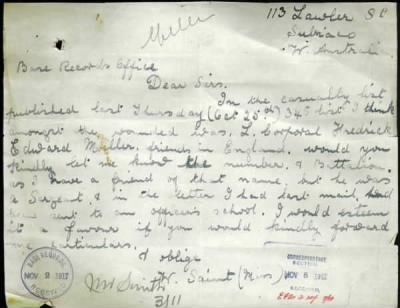 Miller
113 Lawler St
Subiaco
W. Australia
Base Records Office
Dear Sirs.
In the casualty list
published last Thursday (Oct 25th) 345 list I think
amongst the wounded was, L. Corporal Fredrick
Edward Miller. friends in England. would you
kindly let me know the number. & Battalion.
as I have a friend of that name, but he was
a Sergent & in the letter I had last mail, had
been sent to an officer's school. I would esteem
it a favour if you would kindly forward
me particulars.
& oblige
W. Saint (Miss)
3/11
BASE RECORDS
NOV 2 1917
RECEIVED
CORRESPONDENCE
SECTION
NOV 5 1917